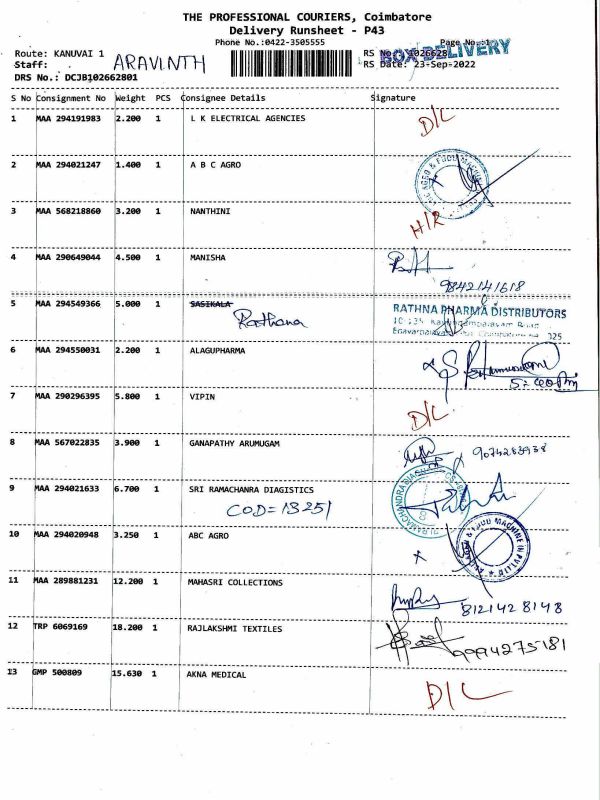 THE PROFESSIONAL COURIERS, Coimbatore
Delivery Runsheet - P43
Phone No.:0422-3505555
Page No.:1
Route: KANUVAI 1
RS No.: 1026628
BOX DELIVERY
Staff: ARAVINTH
RS Date: 23-Sep-2022
DRS No.: DCJB102662801
S No Consignment No Weight PCS Consignee Details Signature
1 MAA 294191983 2.200 1 L K ELECTRICAL AGENCIES D/L
2 MAA 294021247 1.400 1 A B C AGRO
3 MAA 568218860 3.200 1 NANTHINI H/R
4 MAA 290649044 4.500 1 MANISHA
9842141618
5 MAA 294549366 5.000 1 SASIKALA
Rathana
RATHNA PHARMA DISTRIBUTORS
6 MAA 294550031 2.200 1 ALAGUPHARMA
7 MAA 290296395 5.800 1 VIPIN D/L
8 MAA 567022835 3.900 1 GANAPATHY ARUMUGAM 9074283938
9 MAA 294021633 6.700 1 SRI RAMACHANRA DIAGISTICS
COD=13251
10 MAA 294020948 3.250 1 ABC AGRO
11 MAA 289881231 12.200 1 MAHASRI COLLECTIONS
8121428148
12 TRP 6069169 18.200 1 RAJLAKSHMI TEXTILES
9994275181
13 GMP 500809 15.630 1 AKNA MEDICAL D/L